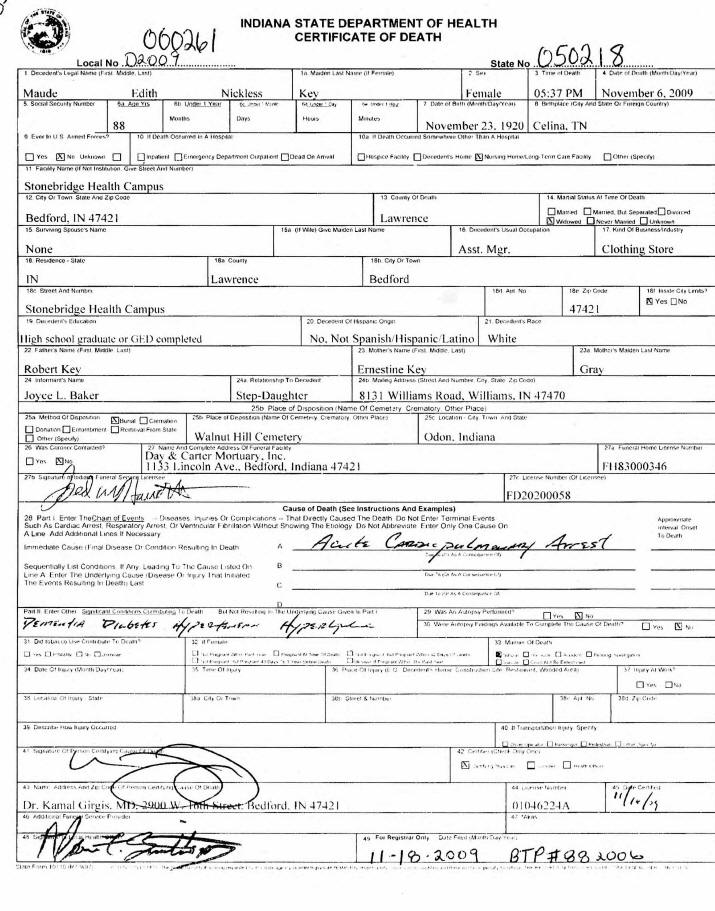 INDIANA STATE DEPARTMENT OF HEALTH
CERTIFICATE OF DEATH
060261
Local No. D2009
State No 050218
1. Decedent's Legal Name (First, Middle, Last) 1a. Maiden Last Name (If Female) 2. Sex 3. Time of Death 4. Date of Death (Month/Day/Year)
Maude Edith Nickless Key Female 05:37 PM November 6, 2009
5. Social Security Number 6a. Age Yrs 6b. Under 1 Year 6c. Under 1 Month 6d. Under 1 Day 6e. Under 1 Hour 7. Date of Birth (Month/Day/Year) 8. Birthplace (City And State Or Foreign Country)
88 Months Days Hours Minutes November 23, 1920 Celina, TN
9. Ever In U.S. Armed Forces? 10. If Death Occurred In A Hospital 10a. If Death Occurred Somewhere Other Than A Hospital
Yes No Unknown Inpatient Emergency Department Outpatient Dead On Arrival Hospice Facility Decedent's Home Nursing Home/Long-Term Care Facility Other (Specify)
11. Facility Name (If Not Institution, Give Street And Number)
Stonebridge Health Campus
12. City Or Town, State And Zip Code 13. County Of Death 14. Marital Status At Time Of Death
Bedford, IN 47421 Lawrence
Married Married, But Separated Divorced
Widowed Never Married Unknown
15. Surviving Spouse's Name 15a. (If Wife) Give Maiden Last Name 16. Decedent's Usual Occupation 17. Kind Of Business/Industry
None Asst. Mgr. Clothing Store
18. Residence - State 18a. County 18b. City Or Town
IN Lawrence Bedford
18c. Street And Number 18d. Apt. No. 18e. Zip Code 18f. Inside City Limits?
Stonebridge Health Campus 47421 Yes No
19. Decedent's Education 20. Decedent Of Hispanic Origin 21. Decedent's Race
High school graduate or GED completed No, Not Spanish/Hispanic/Latino White
22. Father's Name (First, Middle, Last) 23. Mother's Name (First, Middle, Last) 23a. Mother's Maiden Last Name
Robert Key Ernestine Key Gray
24. Informant's Name 24a. Relationship To Decedent 24b. Mailing Address (Street And Number, City, State, Zip Code)
Joyce L. Baker Step-Daughter 8131 Williams Road, Williams, IN 47470
25b. Place of Disposition (Name Of Cemetery, Crematory, Other Place)
25a. Method Of Disposition 25b. Place of Disposition (Name Of Cemetery, Crematory, Other Place) 25c. Location - City, Town, And State
Burial Cremation
Donation Entombment Removal From State
Other (Specify)
Walnut Hill Cemetery Odon, Indiana
26. Was Coroner Contacted? 27. Name And Complete Address Of Funeral Facility 27a. Funeral Home License Number
Yes No
Day & Carter Mortuary, Inc.
1133 Lincoln Ave., Bedford, Indiana 47421 FH83000346
27b. Signature of Indiana Funeral Service Licensee 27c. License Number (Of Licensee)
FD20200058
Cause of Death (See Instructions And Examples)
28. Part I. Enter The Chain of Events - Diseases, Injuries Or Complications - That Directly Caused The Death. Do Not Enter Terminal Events
Such As Cardiac Arrest, Respiratory Arrest, Or Ventricular Fibrillation Without Showing The Etiology. Do Not Abbreviate. Enter Only One Cause On
A Line. Add Additional Lines If Necessary
Approximate Interval Onset To Death
Immediate Cause (Final Disease Or Condition Resulting In Death) A Acute Cardiopulmonary Arrest
Due To (Or As A Consequence Of)
Sequentially List Conditions, If Any, Leading To The Cause Listed On B
Line A. Enter The Underlying Cause (Disease Or Injury That Initiated
Due To (Or As A Consequence Of)
The Events Resulting In Death) Last C
Due To (Or As A Consequence Of)
D
Part II. Enter Other Significant Conditions Contributing To Death But Not Resulting In The Underlying Cause Given In Part I 29. Was An Autopsy Performed? Yes No
Dementia Diabetes Hypertension 30. Were Autopsy Findings Available To Complete The Cause Of Death? Yes No
31. Did Tobacco Use Contribute To Death? 32. If Female 33. Manner Of Death
34. Date Of Injury (Month/Day/Year) 35. Time Of Injury 36. Place Of Injury (E.G. Decedent's Home, Construction Site, Restaurant, Wooded Area) 37. Injury At Work?
Yes No
38. Location Of Injury - State 38a. City Or Town 38b. Street & Number 38c. Apt. No. 38d. Zip Code
39. Describe How Injury Occurred 40. If Transportation Injury, Specify
41. Signature Of Person Certifying Cause Of Death 42. Certifier (Check Only One)
43. Name, Address And Zip Code Of Person Certifying Cause Of Death 44. License Number 45. Date Certified
Dr. Kamal Girgis, MD, 2900 W. 16th Street, Bedford, IN 47421 01046224A
46. Additional Funeral Service Provider
49. For Registrar Only Date Filed (Month/Day/Year)
11-18-2009 BTP#88 2006